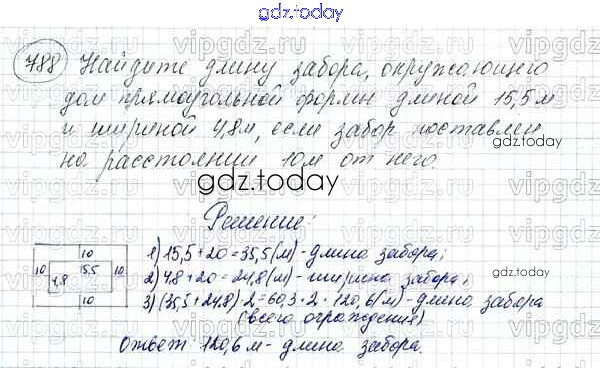 gdz.today
788 Найдите длину забора, окружающего
дом прямоугольной формы длиной 15,5 м
и шириной 4,8 м, если забор поставлен
на расстоянии 10 м от него.
gdz.today
Решение:
10
10 4,8 15,5 10
10
1) 15,5 + 20 = 35,5 (м) - длина забора;
2) 4,8 + 20 = 24,8 (м) - ширина забора;
3) (35,5 + 24,8) · 2 = 60,3 · 2 = 120,6 (м) - длина забора
(всего ограждения)
Ответ: 120,6 м - длина забора.
gdz.today